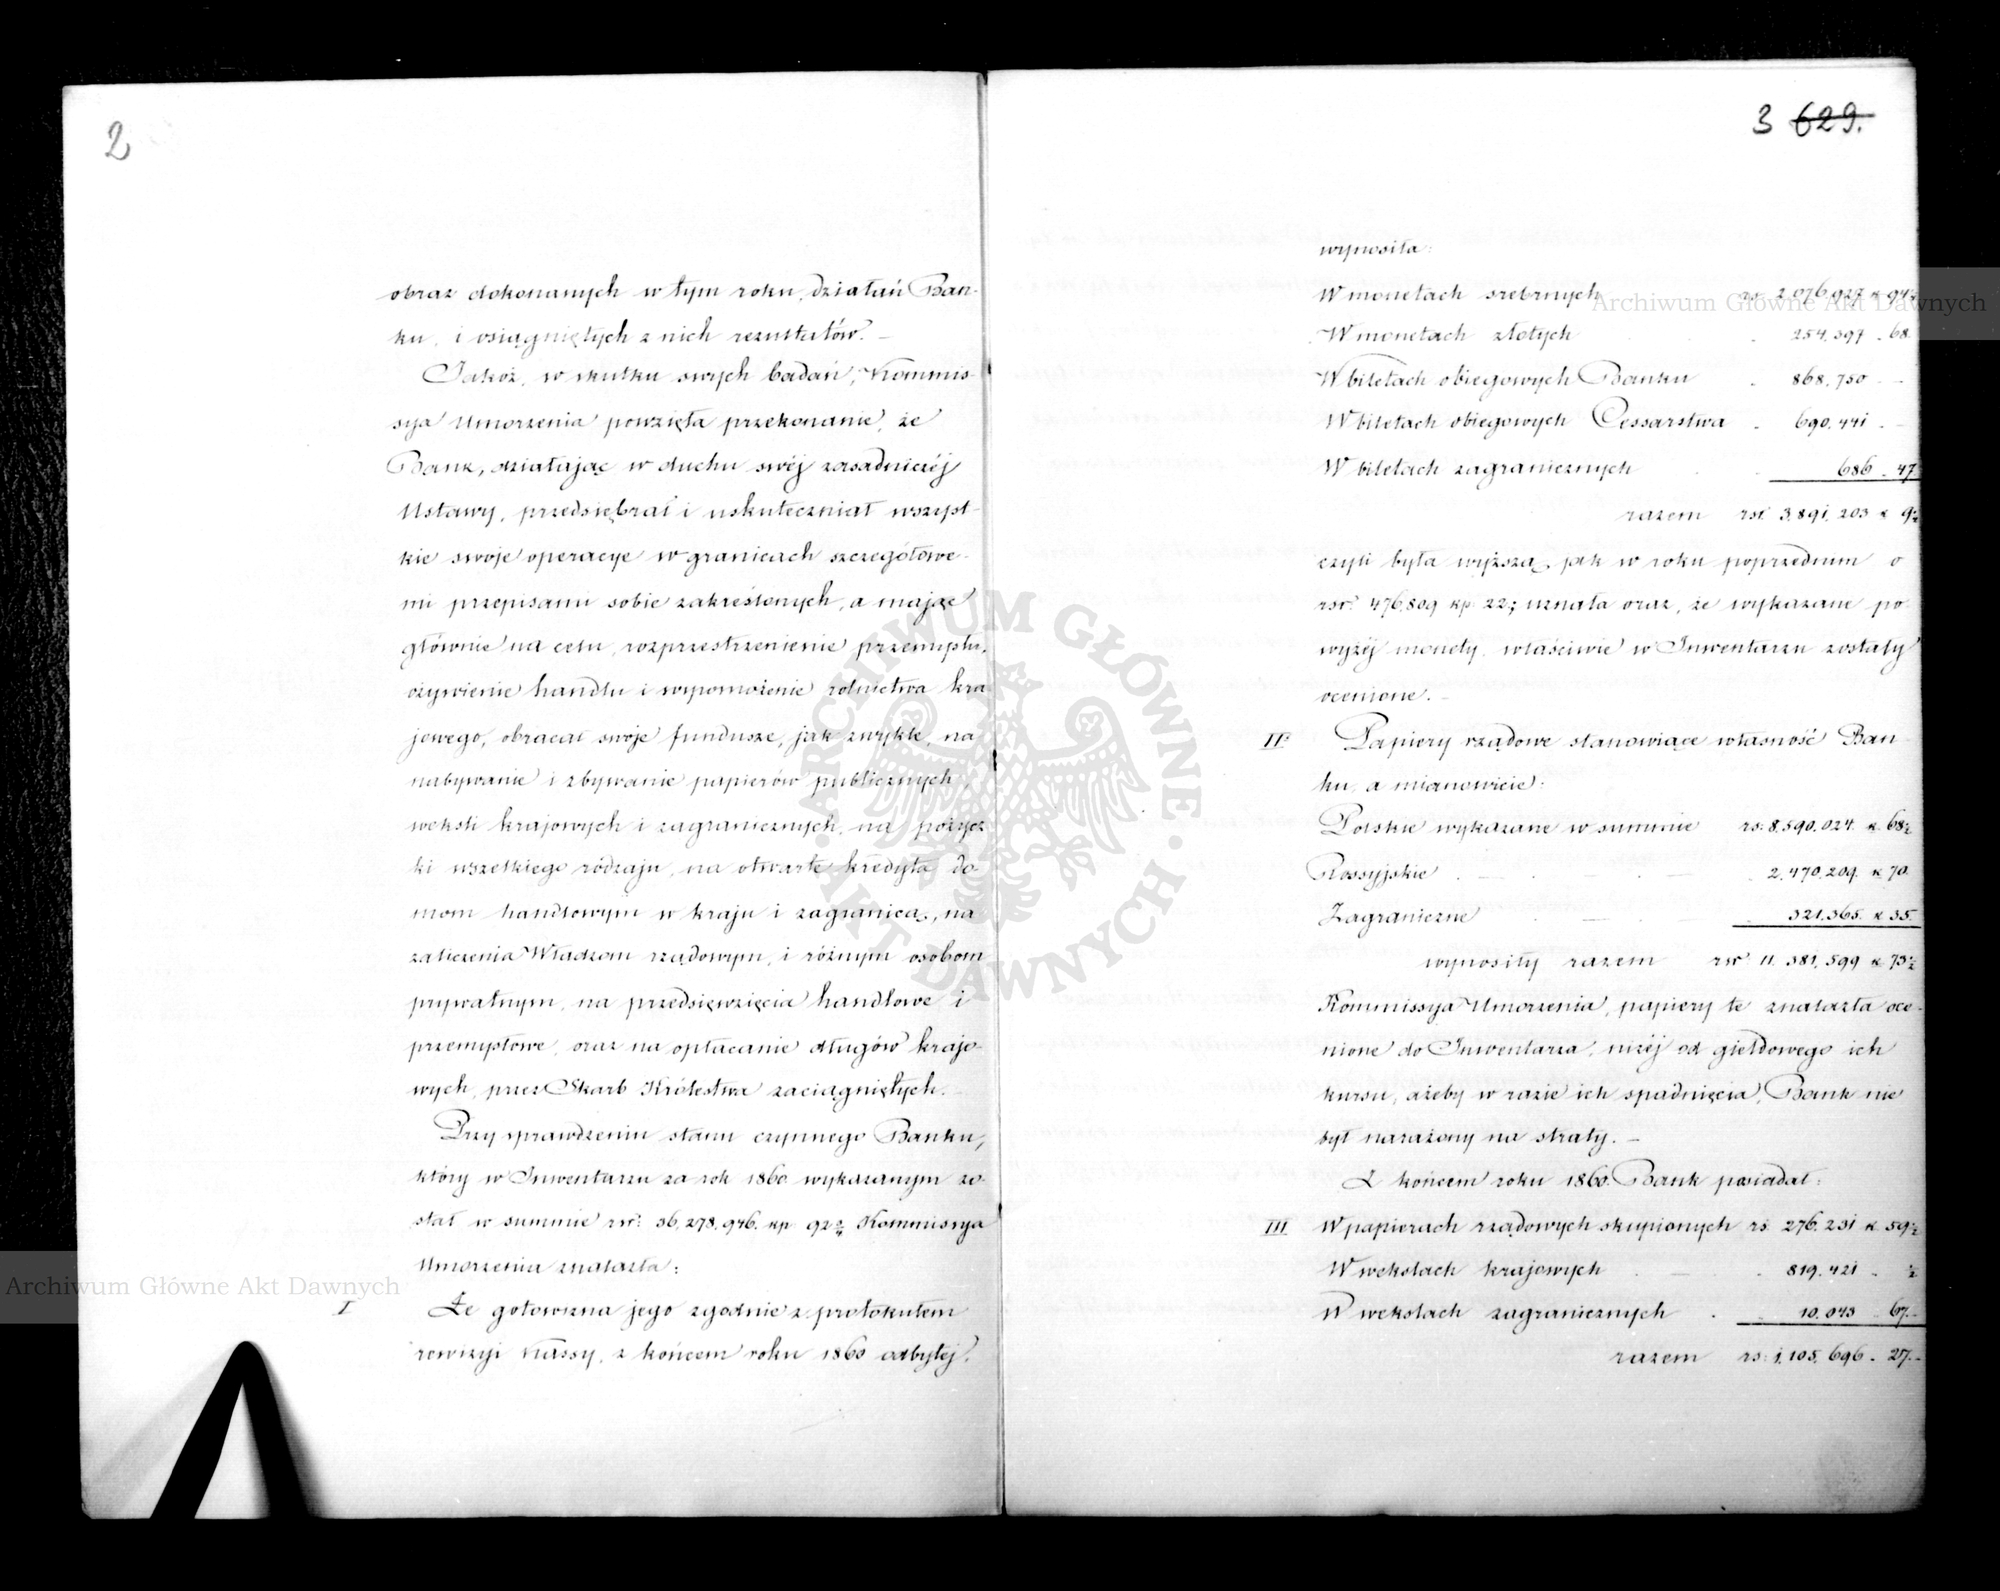 2
obraz dokonanych w tym roku, działań Ban-
ku, i osiągniętych z nich rezultatów. –
Jakoż, w skutku swych badań, Kommis-
sya Umorzenia powzięła przekonanie, że
Bank, działając w duchu swéj zasadniczéj
Ustawy, przedsiębrał i uskuteczniał wszyst-
kie swoje operacye w granicach szczegółowe-
mi przepisami sobie zakreślonych, a mając
głównie na celu, rozprzestrzenienie przemysłu,
ożywienie handlu i wspomożenie rolnictwa kra
jowego, obracał swoje fundusze, jak zwykle, na
nabywanie i zbywanie papierów publicznych,
weksli krajowych i zagranicznych, na pożycz
ki wszelkiego rodzaju, na otwarte kredyta do-
mom handlowym w kraju i zagranicą, na
zaliczenia Władzom rządowym, i różnym osobom
prywatnym, na przedsięwzięcia handlowe i
przemysłowe, oraz na opłacanie długów krajo-
wych, przez Skarb Królestwa zaciągniętych. –
Przy sprawdzeniu stanu czynnego Banku,
który w Inwentarzu za rok 1860 wykazanym zo-
stał w summie rsr: 36,273,946. kp 92 Kommissya
Umorzenia znalazła:
I Że gotowizna jego zgodnie z protokułem
rewizyi Kassy, z końcem roku 1860 odbytej,
3 629.
wynosiła:
W monetach srebrnych rs: 2,076,927 k 94½
W monetach złotych 254,397 . 68.
W biletach obiegowych Banku . 868,750 – –
W biletach obiegowych Cessarstwa . 690,441 . –
W biletach zagranicznych 686 . 47
razem rsr. 3,891,203 k 9½
czyli była wyższą, jak w roku poprzednim o
rsr: 476,809 kp 22; uznała oraz, że wykazane po-
wyżéj monety, właściwie w Inwentarzu zostały
ocenione. –
II Papiery rządowe stanowiące własność Ban-
ku, a mianowicie:
Polskie wykazane w summie rs: 8,590,024. k 68½
Rossyjskie 2,470,209. k 70.
Zagraniczne 321,365. k 35.
wynosiły razem rsr 11,381,599 k 73½
Kommissya Umorzenia, papiery te znalazła oce-
nione do Inwentarza, niżéj od giełdowego ich
kursu, ażeby w razie ich spadnięcia, Bank nie
był narażony na straty. –
Z końcem roku 1860. Bank posiadał:
III W papierach rządowych skupionych rs 276,231 k 59½
W wekslach krajowych 819,421 . ½
W wekslach zagranicznych . 10,043 . 67.–
razem rs: 1,105,696 . 27.–
Archiwum Główne Akt Dawnych
Archiwum Główne Akt Dawnych
ARCHIWUM GŁÓWNE
AKT DAWNYCH